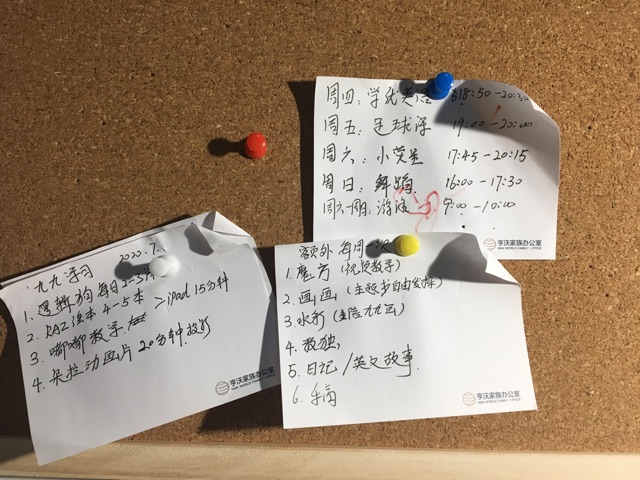 周四：学优英语 18:50-20:30
周五：足球课 19:00-20:00
周六：小荧星 17:45-20:15
周日：舞蹈 16:00-17:30
9:00-10:00
亨沃家族办公室
九九学习 2020.7.
1. 逻辑狗 每日2-3
2. RAZ 读本 4-5本 > ipad 15分钟
3. 嘟嘟数学
4. 朵拉动画片 20分钟
亨沃家族办公室
额外 每周
1. 魔方（视频教学）
2. 画画（主题书自由发挥）
3. 水彩
4. 数独
5. 日记/英文故事
6.
亨沃家族办公室
HAN WORLD FAMILY OFFICE